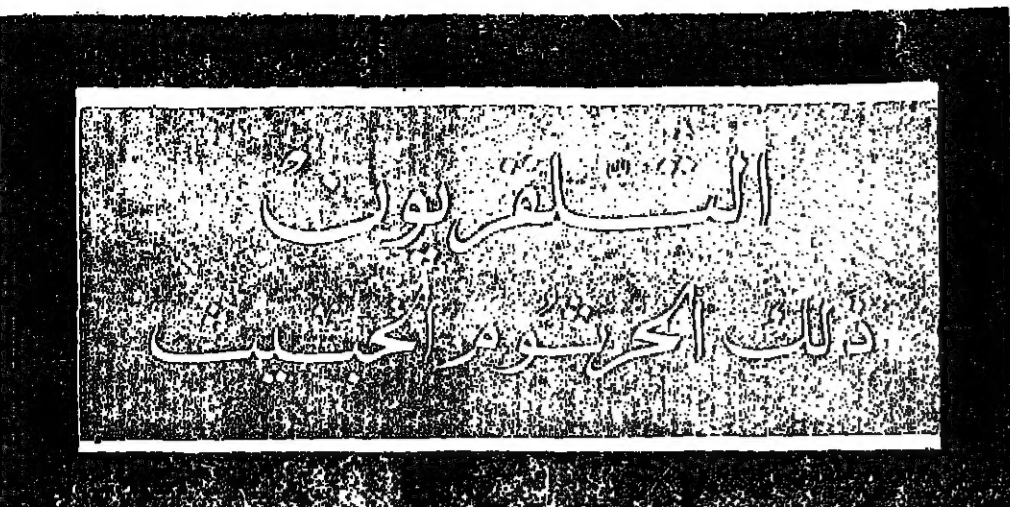 التلفزيون
ذلك الجرثوم الخبيث